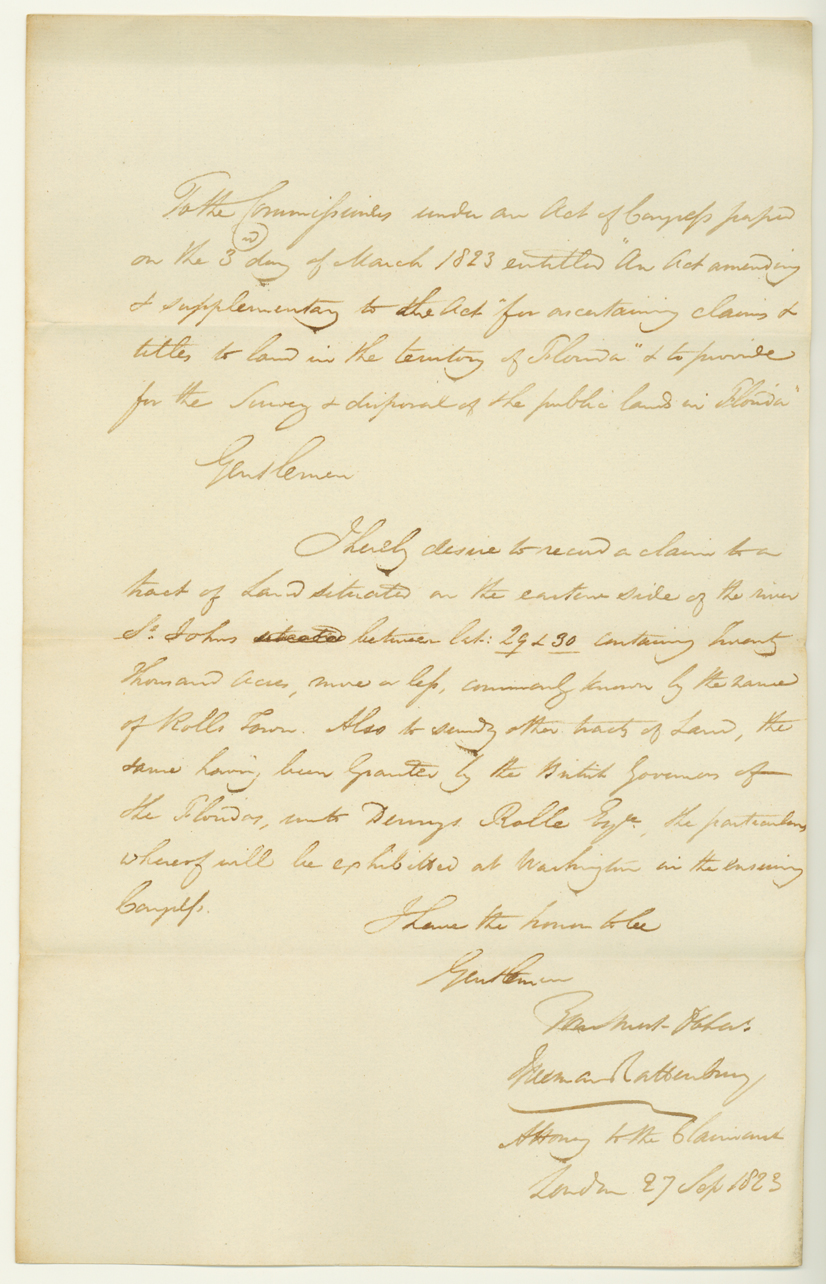 To the Commissioners under an Act of Congress passed
on the 3rd day of March 1823 entitled "An Act amending
& supplementary to the Act "for ascertaining claims &
titles to land in the territory of Florida" & to provide
for the Survey & disposal of the public lands in Florida"
Gentlemen
I hereby desire to record a claim to a
tract of Land situated on the eastern side of the river
St. Johns situated between lat: 29 & 30 containing Twenty
Thousand Acres, more or less, commonly known by the name
of Rolls Town. Also to sundry other tracts of Land, the
same having been Granted by the British Governors of
the Floridas, unto Dennys Rolle Esqre, the particulars
whereof will be exhibited at Washington in the ensuing
Congress.
I have the honor to be
Gentlemen
Your most Obt
Freeman Rattenbury
Attorney to the Claimant
London 27 Sep 1823